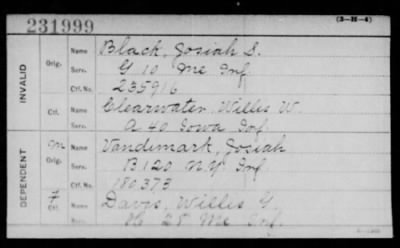 231999
(3-H-4)
INVALID
Orig.
Name Black, Josiah S.
Serv. G 10 Me Inf.
Ctf. No. 235916
Ctf.
Name Clearwater, Willis W.
Serv. A 40 Iowa Inf.
DEPENDENT
M
Orig.
Name Vandemark, Josiah
Serv. B 120 N.Y. Inf.
Ctf. No. 180373
Ctf.
Name Davis, Willis G.
Serv. 28 Me Inf.